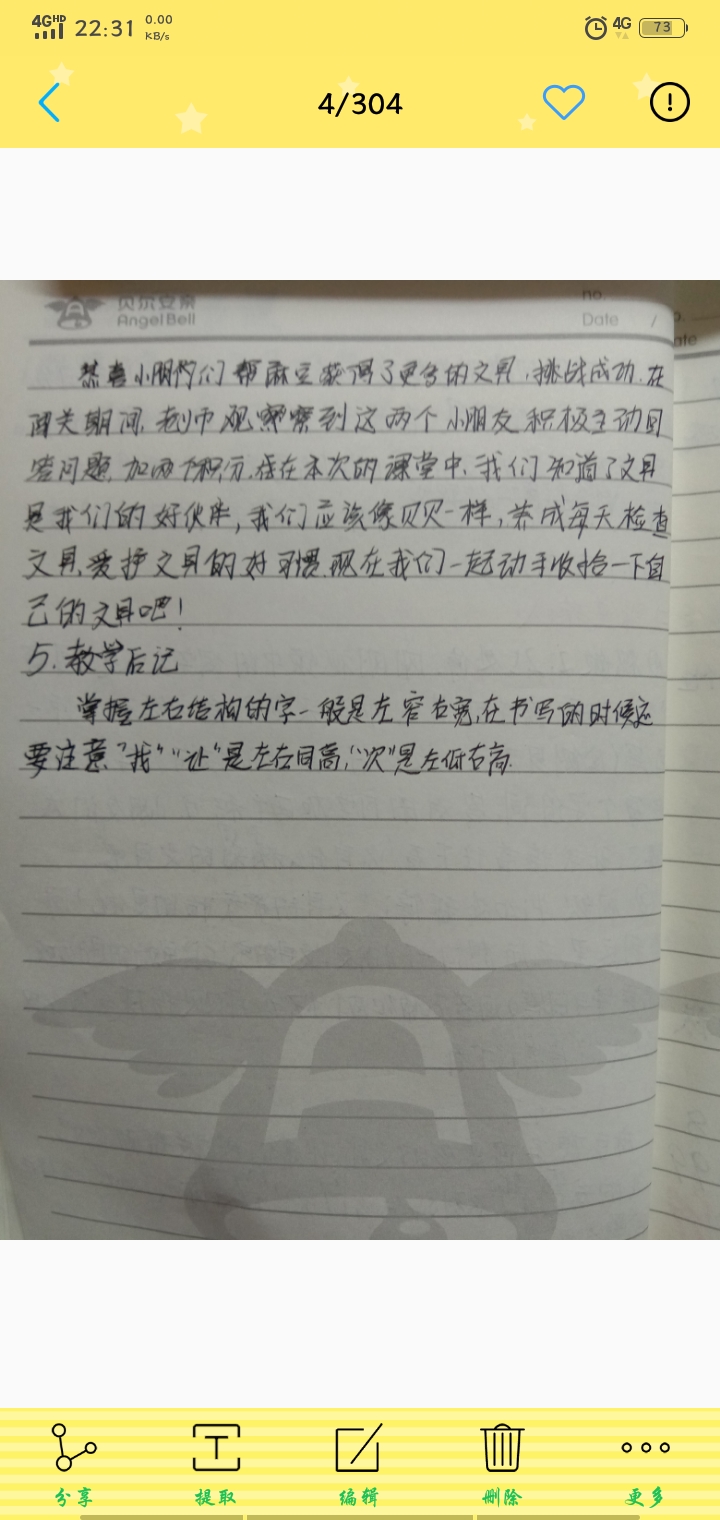 4GHD 22:31 0.00 KB/s 4G 73
4/304
贝尔安亲
AngelBell
no.
Date /
恭喜小朋友们帮麻豆获得了更多的文具,挑战成功.在
闯关期间,老师观察到这两个小朋友积极主动回
答问题,加两个积分.在本次的课堂中,我们知道了文具
是我们的好伙伴,我们应该像贝贝一样,养成每天检查
文具,爱护文具的好习惯.现在我们一起动手收拾一下自
己的文具吧!
5.教学后记
掌握左右结构的字一般是左窄右宽,在书写的时候还
要注意"找""让"是左右同高,"次"是左低右高.
分享 提取 编辑 删除 更多